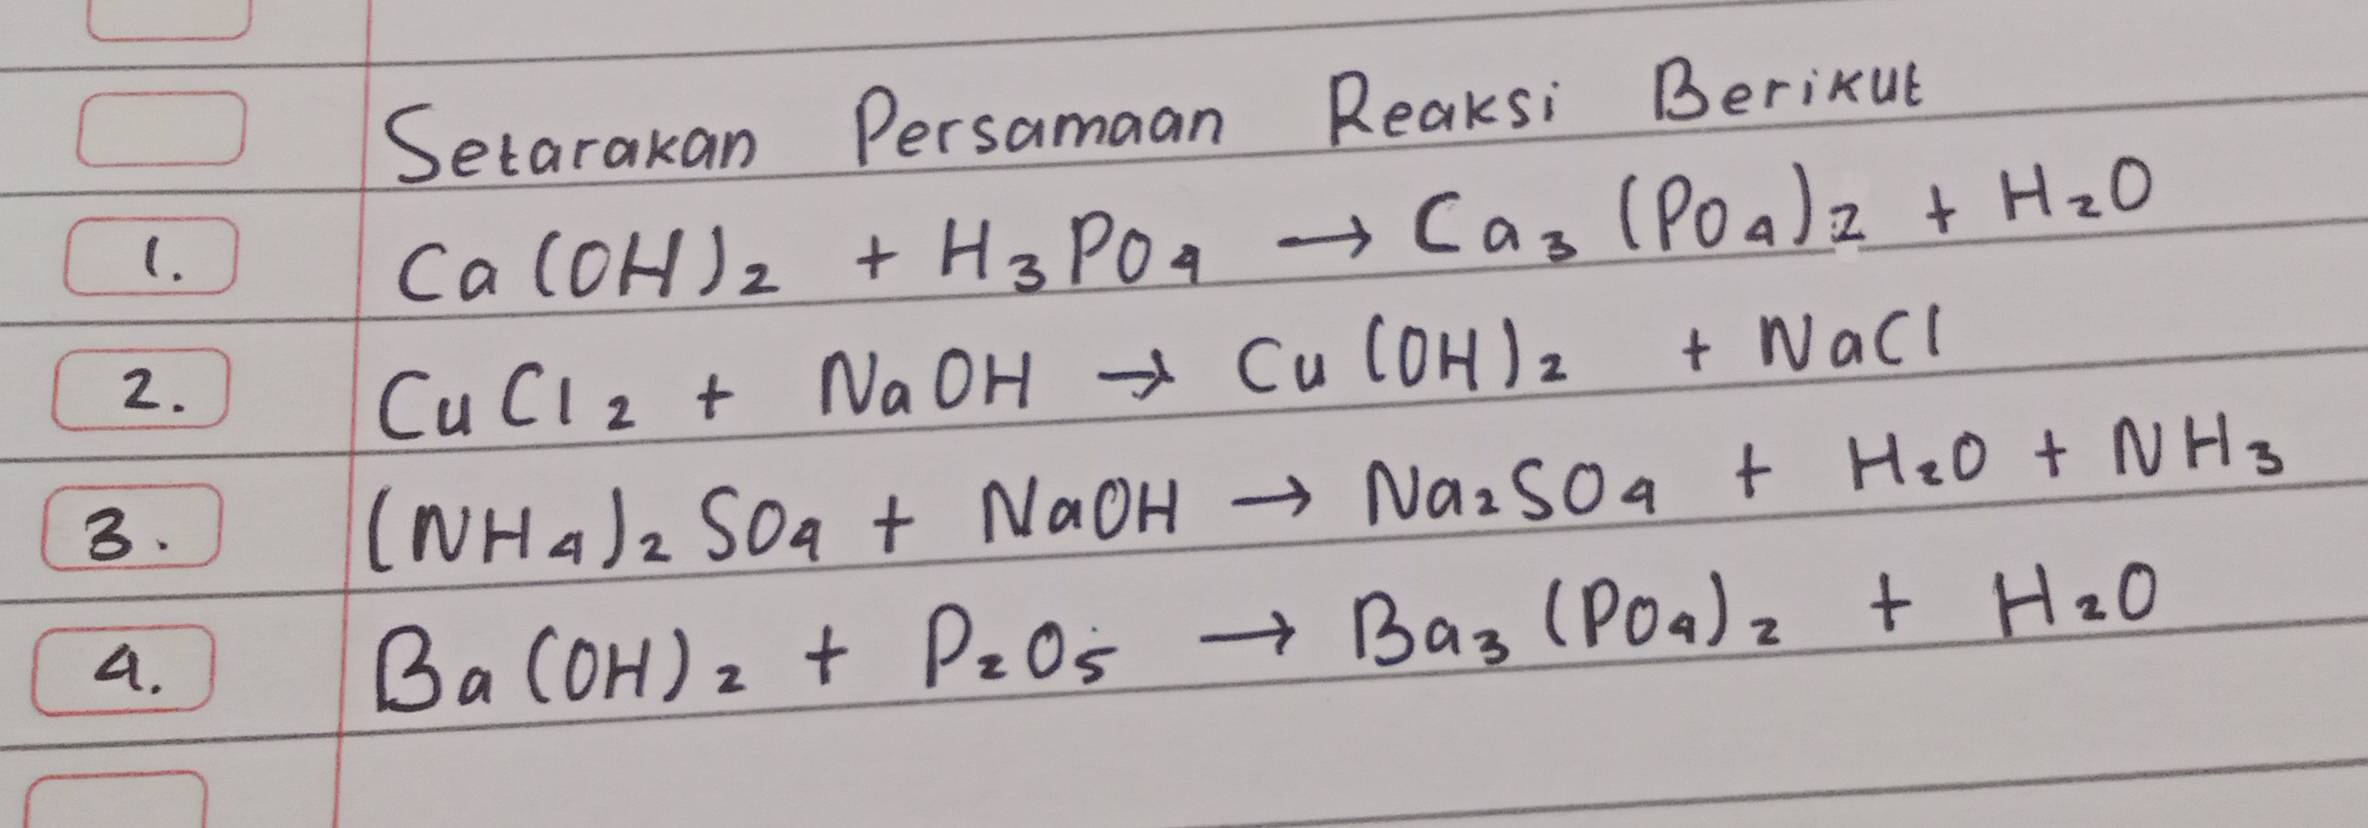 Setarakan Persamaan Reaksi Berikut
1. Ca(OH)₂ + H₃PO₄ → Ca₃(PO₄)₂ + H₂O
2. CuCl₂ + NaOH → Cu(OH)₂ + NaCl
3. (NH₄)₂SO₄ + NaOH → Na₂SO₄ + H₂O + NH₃
4. Ba(OH)₂ + P₂O₅ → Ba₃(PO₄)₂ + H₂O